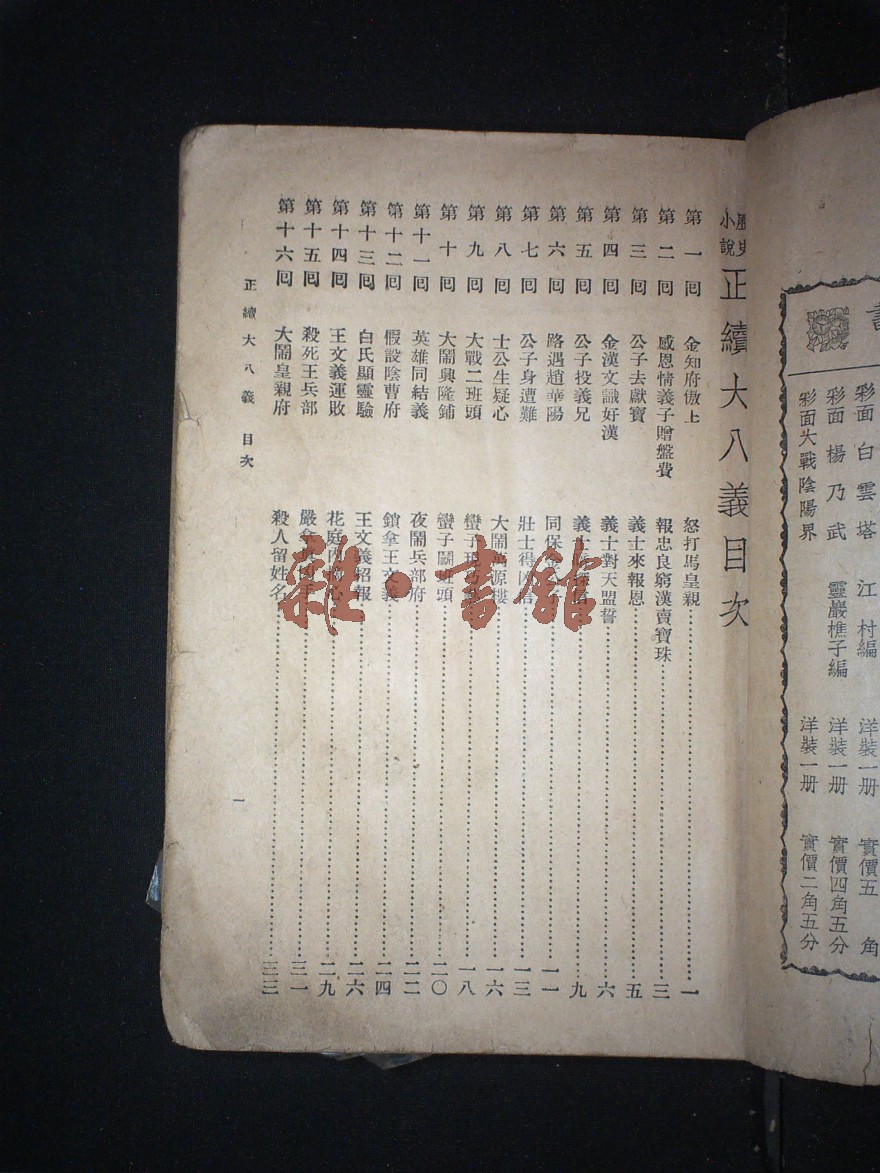 歷史小說 正續大八義目次
第一囘 金知府傲上 怒打馬皇親 一
第二囘 感恩情義子贈盤費 報忠良窮漢賣寶珠 三
第三囘 公子去獻寶 義士來報恩 五
第四囘 金漢文識好漢 義士對天盟誓 六
第五囘 公子投義兄 義士 九
第六囘 路遇趙華陽 同保金 一一
第七囘 公子身遭難 壯士得凶信 一三
第八囘 士公生疑心 大鬧 源樓 一六
第九囘 大戰二班頭 蠻子 一八
第十囘 大鬧興隆鋪 蠻子鬪班頭 二〇
第十一囘 英雄同結義 夜鬧兵部府 二二
第十二囘 假設陰曹府 鎖拿王文義 二四
第十三囘 白氏顯靈驗 王文義招報 二六
第十四囘 王文義運敗 花庭內 心 二九
第十五囘 殺死王兵部 嚴拿 手 三一
第十六囘 大鬧皇親府 殺人留姓名 三三
正續大八義 目次
一
雜·書館
彩面 白雲塔 江村編 洋裝一册 實價五角
彩面 楊乃武 靈巖樵子編 洋裝一册 實價四角五分
彩面大戰陰陽界 洋裝一册 實價二角五分